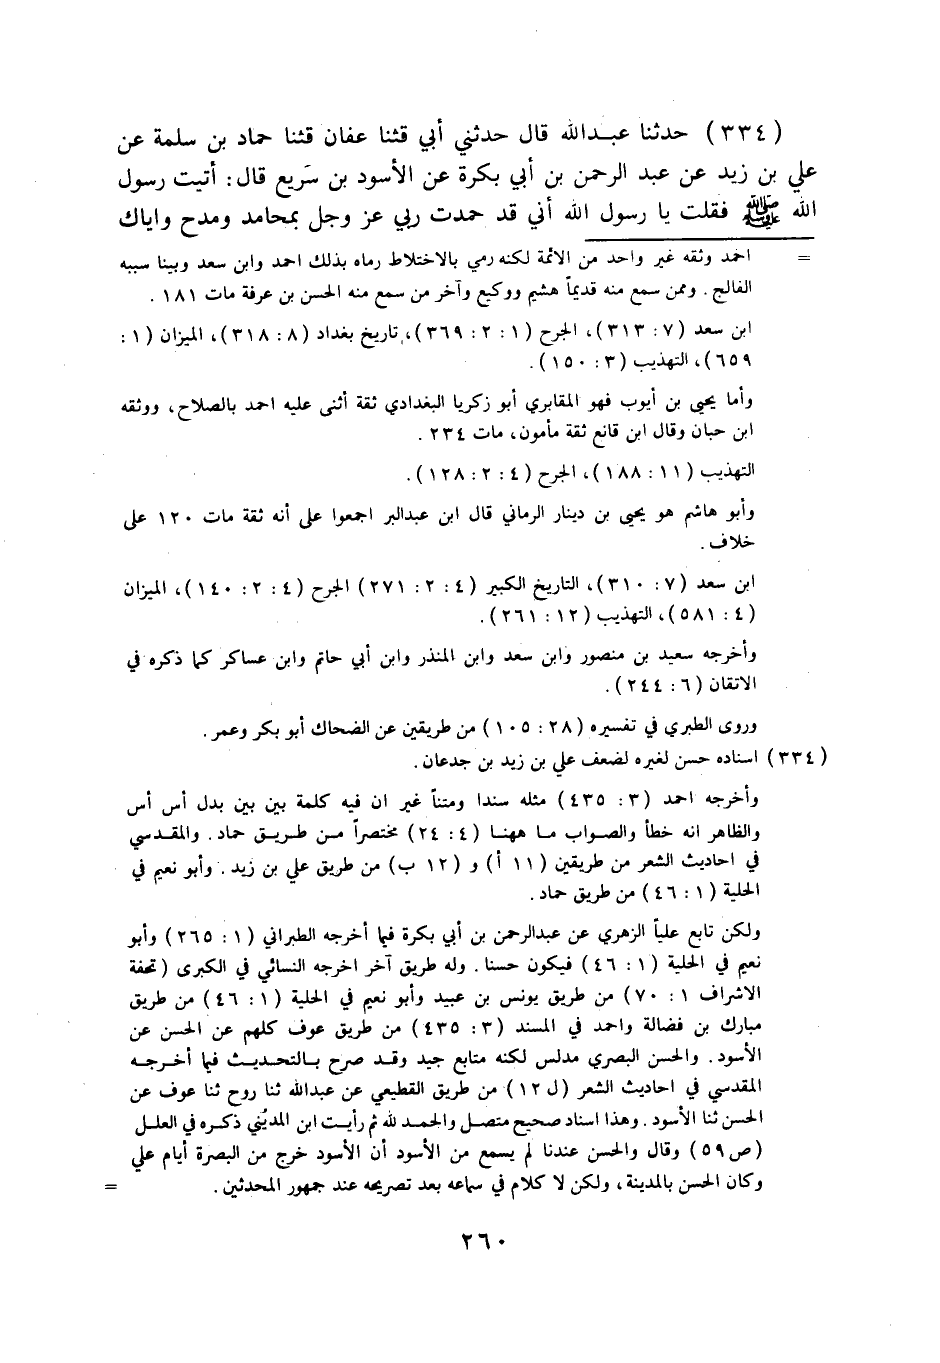 (٣٣٤) حدثنا عبدالله قال حدثني أبي قثنا عفان قثنا حماد بن سلمة عن
علي بن زيد عن عبد الرحمن بن أبي بكرة عن الأسود بن سَريع قال: أتيت رسول
الله ﷺ فقلت يا رسول الله أني قد حمدت ربي عز وجل بمحامد ومدح واياك
= احمد وثقه غير واحد من الائمة لكنه رمي بالاختلاط رماه بذلك احمد وابن سعد وبينا سببه
الفالج. وممن سمع منه قديماً هشيم ووكيع وآخر من سمع منه الحسن بن عرفة مات ١٨١.
ابن سعد (٧: ٣١٣)، الجرح (١: ٢: ٣٦٩)، تاريخ بغداد (٨: ٣١٨)، الميزان (١:
٦٥٩)، التهذيب (٣: ١٥٠).
وأما يحيى بن أيوب فهو المقابري أبو زكريا البغدادي ثقة أثنى عليه احمد بالصلاح، ووثقه
ابن حبان وقال ابن قانع ثقة مأمون، مات ٢٣٤.
التهذيب (١١: ١٨٨)، الجرح (٤: ٢: ١٢٨).
وأبو هاشم هو يحيى بن دينار الرماني قال ابن عبدالبر اجمعوا على أنه ثقة مات ١٢٠ على
خلاف.
ابن سعد (٧: ٣١٠)، التاريخ الكبير (٤: ٢: ٢٧١) الجرح (٤: ٢: ١٤٠)، الميزان
(٤: ٥٨١)، التهذيب (١٢: ٢٦١).
وأخرجه سعيد بن منصور وابن سعد وابن المنذر وابن أبي حاتم وابن عساكر كما ذكره في
الاتقان (٦: ٢٤٤).
وروى الطبري في تفسيره (٢٨: ١٠٥) من طريقين عن الضحاك أبو بكر وعمر.
(٣٣٤) اسناده حسن لغيره لضعف علي بن زيد بن جدعان.
وأخرجه احمد (٣: ٤٣٥) مثله سندا ومتناً غير ان فيه كلمة بين بين بدل أس أس
والظاهر انه خطأ والصواب ما ههنا (٤: ٢٤) مختصراً من طريق حماد. والمقدسي
في احاديث الشعر من طريقين (١١ أ) و (١٢ ب) من طريق علي بن زيد. وأبو نعيم في
الحلية (١: ٤٦) من طريق حماد.
ولكن تابع علياً الزهري عن عبدالرحمن بن أبي بكرة فيما أخرجه الطبراني (١: ٢٦٥) وأبو
نعيم في الحلية (١: ٤٦) فيكون حسنا. وله طريق آخر اخرجه النسائي في الكبرى (تحفة
الاشراف ١: ٧٠) من طريق يونس بن عبيد وأبو نعيم في الحلية (١: ٤٦) من طريق
مبارك بن فضالة واحمد في المسند (٣: ٤٣٥) من طريق عوف كلهم عن الحسن عن
الأسود. والحسن البصري مدلس لكنه متابع جيد وقد صرح بالتحديث فيما أخرجه
المقدسي في احاديث الشعر (ل ١٢) من طريق القطيعي عن عبدالله ثنا روح ثنا عوف عن
الحسن ثنا الأسود. وهذا اسناد صحيح متصل والحمد لله ثم رأيت ابن المديُني ذكره في العلل
(ص ٥٩) وقال والحسن عندنا لم يسمع من الأسود أن الأسود خرج من البصرة أيام علي
وكان الحسن بالمدينة، ولكن لا كلام في سماعه بعد تصريحه عند جمهور المحدثين. =
٢٦٠